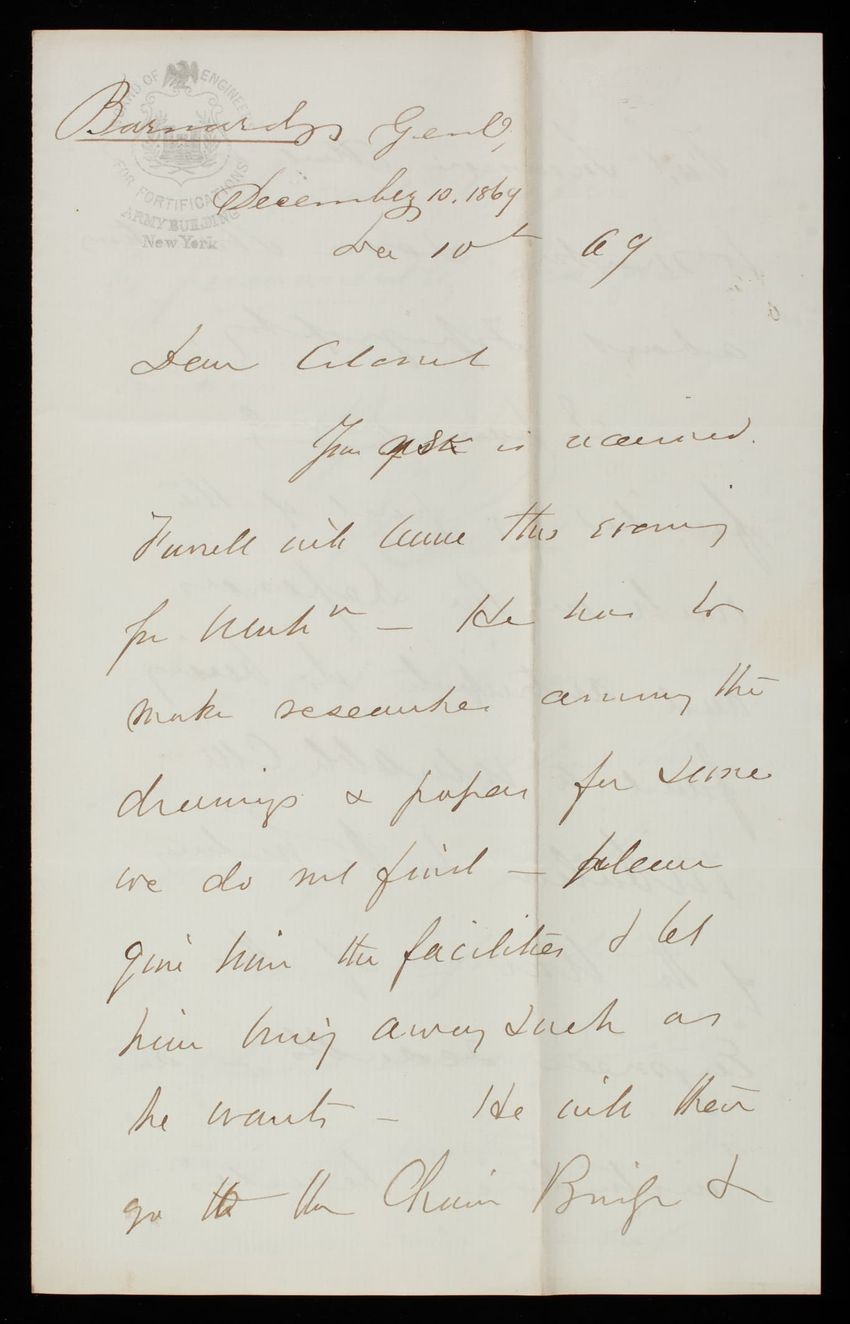 BOARD OF ENGINEERS
FOR FORTIFICATIONS
ARMY BUILDING
New York
Barnard, Genl,
December 10. 1869
Dec 10th 69
Dear Colonel
Your is received.
will leave this evening
for Washn — He has to
make researches among the
drawings & papers for some
we do not find — please
give him the facilities & let
him bring away such as
he wants — He will then
go to the Chain Bridge &